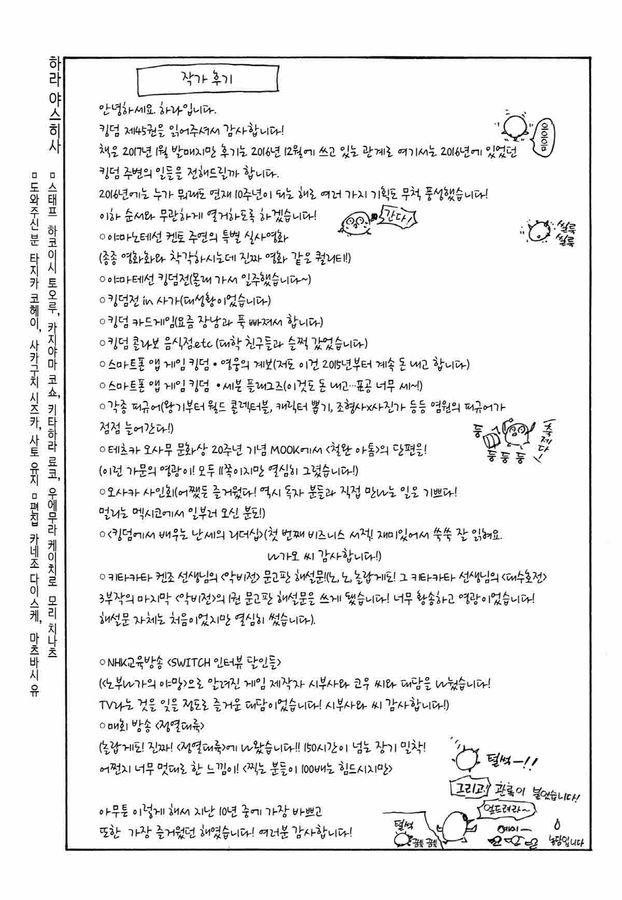 작가 후기
안녕하세요 하라입니다.
킹덤 제45권을 읽어주셔서 감사합니다!
책은 2017년 1월 발매지만 후기는 2016년 12월에 쓰고 있는 관계로 여기서는 2016년에 있었던
킹덤 주변의 일들을 전해드릴까 합니다.
2016년에는 누가 뭐래도 연재 10주년이 되는 해로 여러 가지 기획도 무척 풍성했습니다!
이하 순서와 무관하게 열거하도록 하겠습니다!
간다!
씰룩
씰룩
○야마노테선 켄토 주연의 특별 실사영화
(종종 영화화와 착각하시는데 진짜 영화 같은 퀄리티!)
○야마테선 킹덤전(몰래 가서 일주했습니다~)
○킹덤전 in 사가(대성황이었습니다)
○킹덤 카드게임(요즘 장남과 푹 빠져서 합니다)
○킹덤 콜라보 음식점etc (대학 친구들과 슬쩍 갔었습니다)
○스마트폰 앱 게임 킹덤·영웅의 계보(저도 이건 2015년부터 계속 돈 내고 합니다)
○스마트폰 앱 게임 킹덤·세븐 플래그즈(이것도 돈 내고…표공 너무 세~!)
○각종 피규어(왕기부터 월드 콜렉터블, 캐릭터 뽑기, 조형사x사진가 등등 염원의 피규어가
점점 늘어간다!)
축제다
둥
둥둥둥
○테츠카 오사무 문화상 20주년 기념 MOOK에서 <철완 아톰>의 단편을!
(이런 가문의 영광이! 모두 11쪽이지만 열심히 그렸습니다!)
○오사카 사인회(어쨌든 즐거웠다! 역시 독자 분들과 직접 만나는 일은 기쁘다!
멀리는 멕시코에서 일부러 오신 분도!)
○<킹덤에서 배우는 난세의 리더십>(첫 번째 비즈니스 서적! 재미있어서 쑥쑥 잘 읽혀요.
나가오 씨 감사합니다!)
○키타카타 켄조 선생님의 <악비전> 문고판 해설문!(노, 노, 놀랍게도! 그 키타카타 선생님의 <대수호전>
3부작의 마지막 <악비전>의 1권 문고판 해설문을 쓰게 됐습니다! 너무 황송하고 영광이었습니다!
해설문 자체는 처음이었지만 열심히 썼습니다).
○NHK교육방송 <SWITCH 인터뷰 달인들>
(<노부나가의 야망>으로 알려진 게임 제작자 시부사와 코우 씨와 대담을 나눴습니다!
TV라는 것을 잊을 정도로 즐거운 대담이었습니다! 시부사와 씨 감사합니다!)
○매회 방송 <정열대륙>
(놀랍게도! 진짜! <정열대륙>에 나왔습니다!! 150시간이 넘는 장기 밀착!
어쩐지 너무 멋대로 한 느낌이! <찍는 분들이 100배는 힘드시지만>
털썩—!!
그리고! 관록이 붙었습니다!
엎드려라~
아무튼 이렇게 해서 지난 10년 중에 가장 바쁘고
또한 가장 즐거웠던 해였습니다! 여러분 감사합니다!
털썩
예이~
농담입니다
하라 야스히사
▫스태프 하코이시 토오루, 카지야마 코쇼, 키타하라 료코, 우에무라 케이치로 모리 치나츠
▫도와주신 분 타지카 코헤이, 사카구치 시즈카, 사토 유지 ▫편집 카네조 다이스케, 마츠바시 유